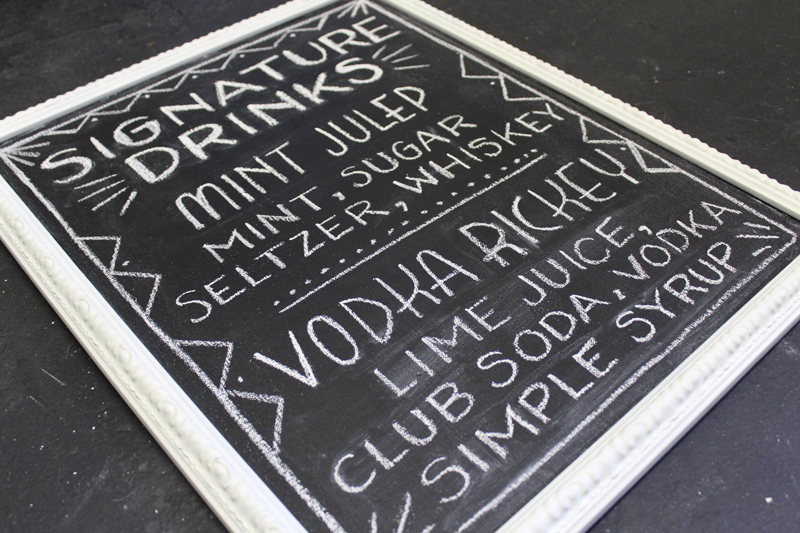 SIGNATURE
DRINKS
MINT JULEP
MINT, SUGAR
SELTZER, WHISKEY
VODKA RICKEY
LIME JUICE,
CLUB SODA, VODKA
SIMPLE SYRUP